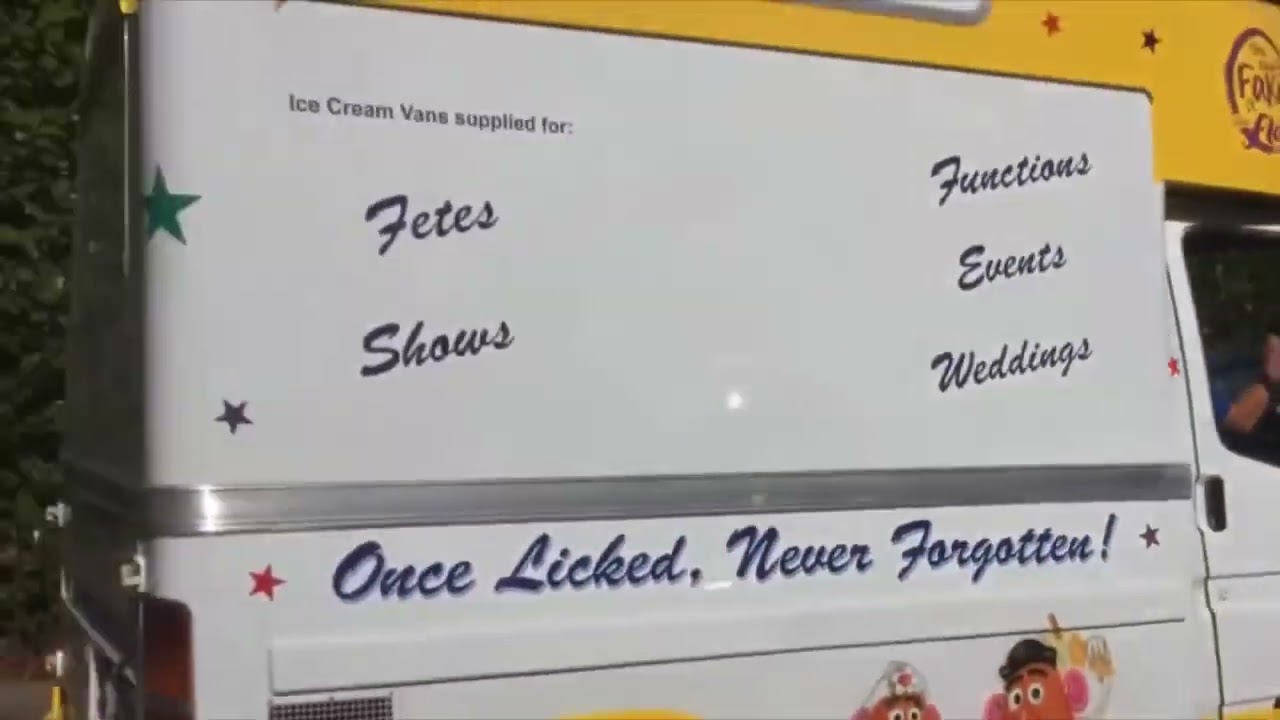 Ice Cream Vans supplied for:
Fetes
Shows
Functions
Events
Weddings
Once Licked, Never Forgotten!